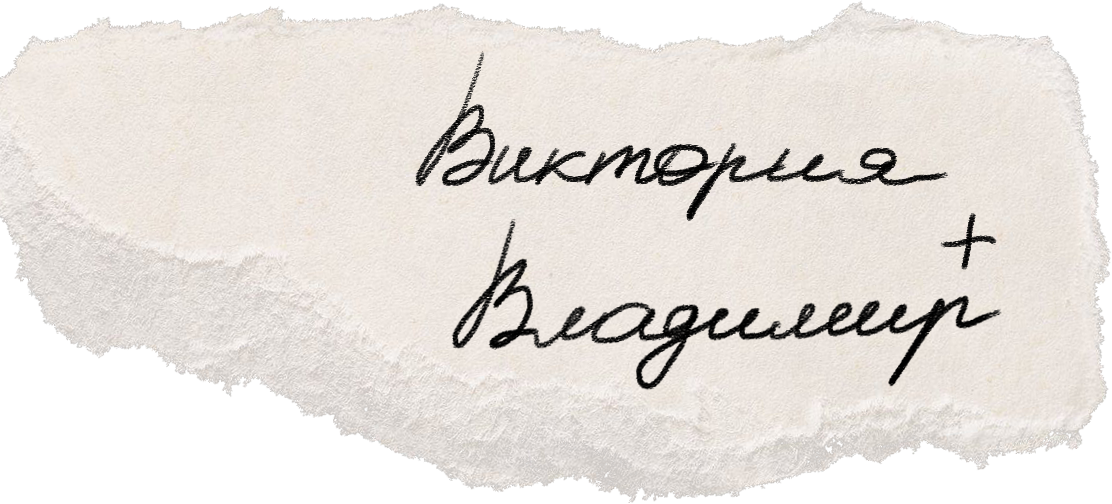 Виктория
+
Владимир